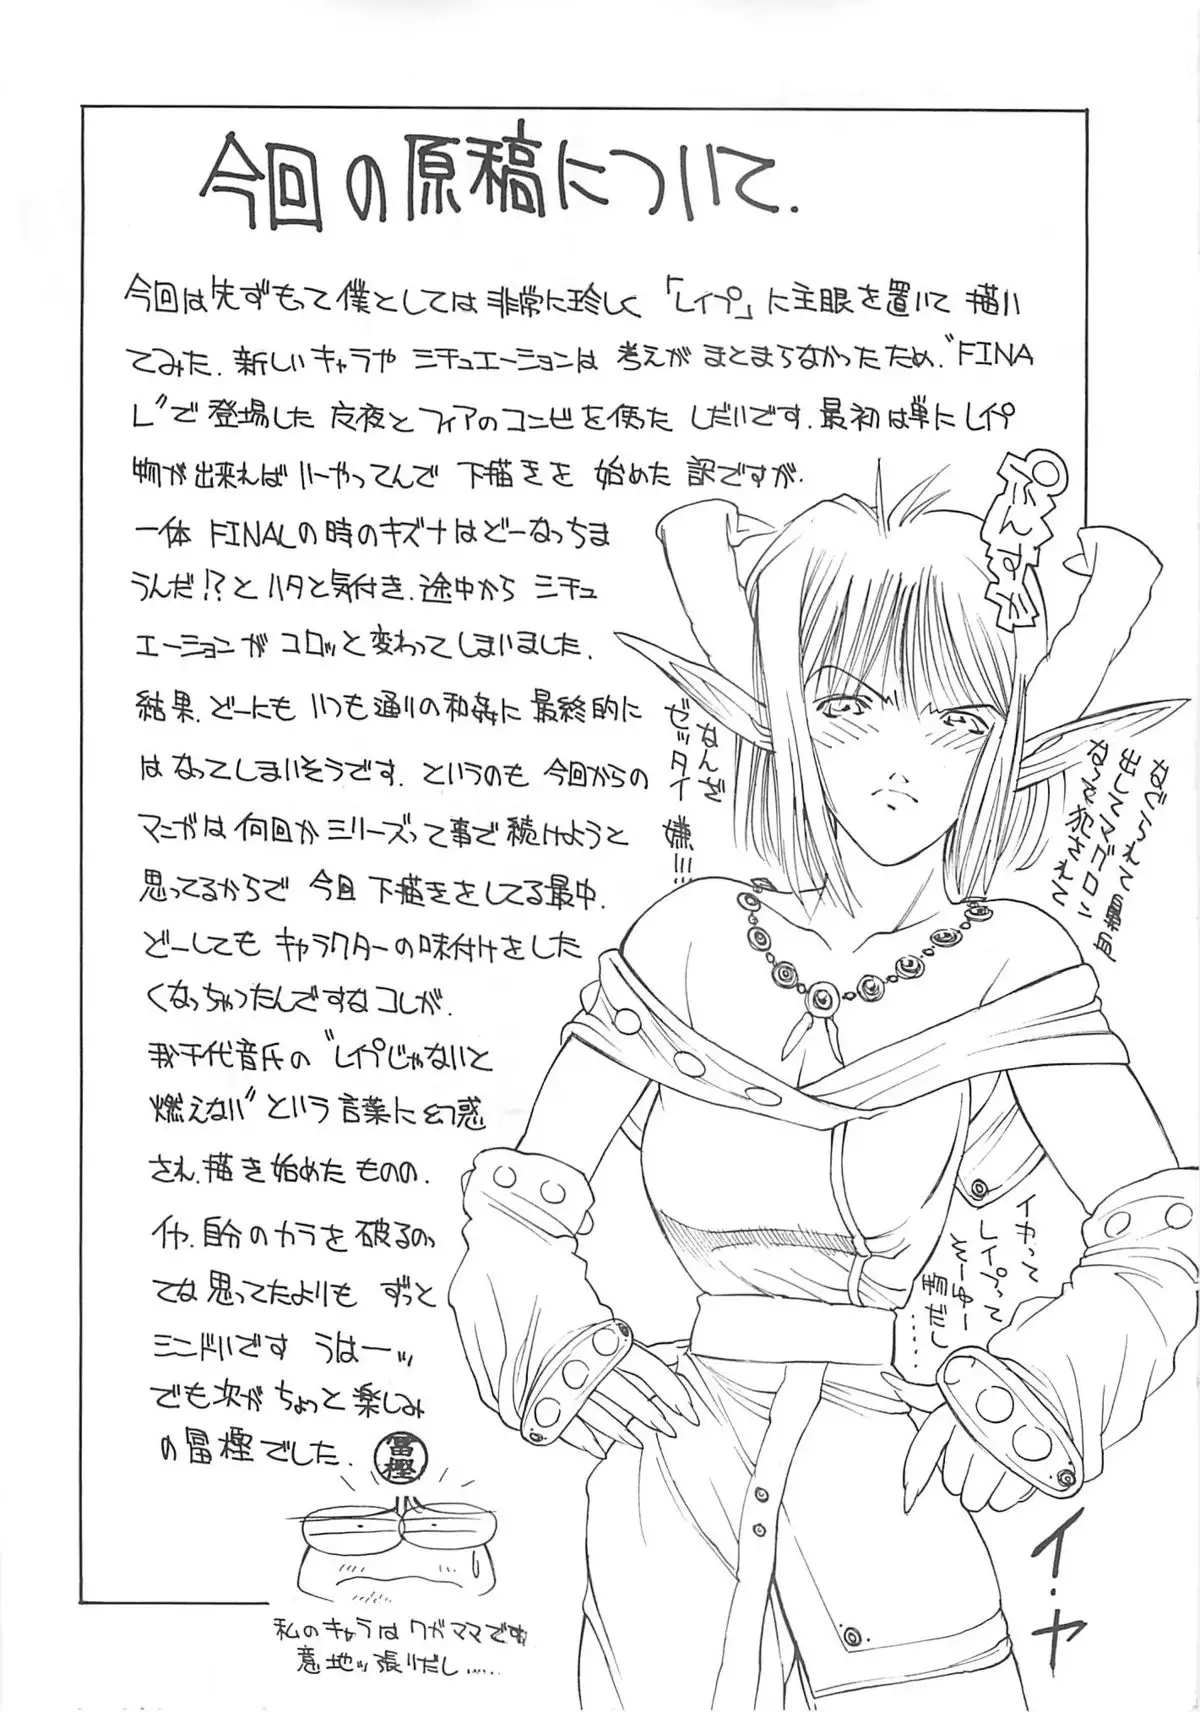 今回の原稿について.
今回は先ずもって僕としては非常に珍しく「レイプ」に主眼を置いて描い
てみた.新しいキャラやシチュエーションは考えがまとまらなかったため、“FINA
L”で登場した 夜とフィアのコンビを使ったしだいです.最初は単にレイプ
物が出来ればいーやってんで下描きを始めた訳ですが.
一体FINALの時のキズナはどーなっちま
うんだ!?とハタと気付き.途中からシチュ
エーションがコロッと変わってしまいました.
結果.どーにもいつも通りの和姦に最終的に
はなってしまいそうです.というのも今回からの
マンガは何回かシリーズって事で続けようと
思ってるからで今且下描きをしてる最中.
どーしてもキャラクターの味付けをした
くなっちゃったんですなコレが.
我千代音氏の“レイプじゃないと
燃えない”という言葉に幻惑
され.描き始めたものの.
イヤ.自分のカラを破るのっ
てな思ってたよりもずっと
シンドいですうはーッ
でも次がちょっと楽しみ
の冨樫でした.
冨樫
私のキャラはワガママです
意地ッ張りだし......
なんだ
ゼッタイ
嫌!!!
出して
イカって
レイプって
......
イ・ヤ